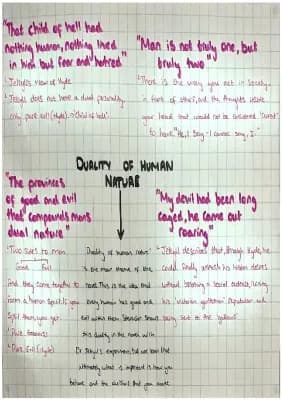 "That child of hell had
nothing human, nothing lived
in him but fear and hatred"
- Jekyll's view of Hyde
- Jekyll does not have a dual personality,
only pure evil (Hyde). "Child of hell".
"Man is not truly one, but
truly two"
- There is the way you act in society,
in front of others, and the thoughts inside
your head that would not be considered
to have "He, I say - I cannot say, I."
DUALITY OF HUMAN
NATURE
"The provinces
of good and evil
that compounds mans
dual nature"
- Two sides to man
Good Evil
And they come together to
form a human spirit. If you
split them, you get
- Pure Goodness
- Pure Evil (Hyde)
'Duality of human nature'
is the main theme of the
novel. This is the idea that
every human has good and
evil within them. Stevenson shows
this duality in the novel with
Dr Jekyll's experiment, but we learn that
ultimately what is important is how you
behave and the decisions that you make
"My devil had been long
caged, he came out
roaring"
- Jekyll describes that, through Hyde, he
could finally unleash his hidden desires
without becoming a social outcast, having
his victorian gentleman reputation and
being sent to the 'gallows'.